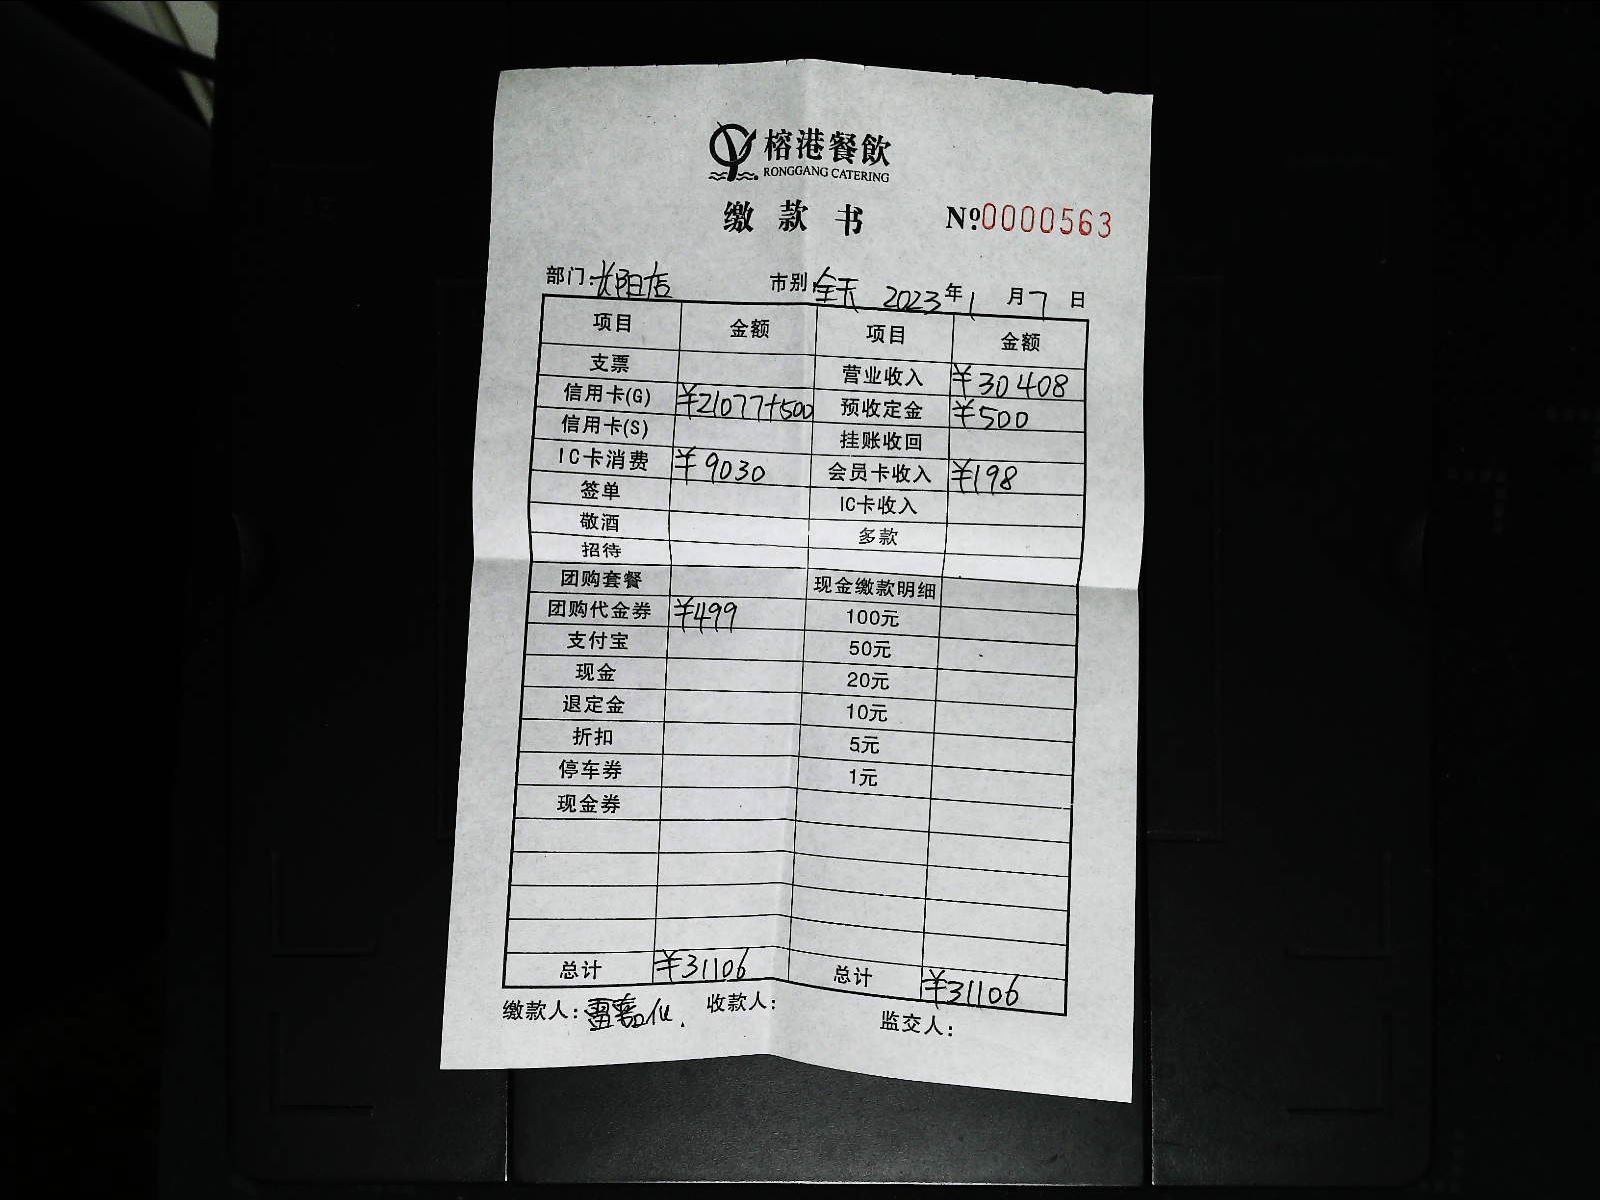 榕港餐飲
RONGGANG CATERING
缴款书 №0000563
部门:长阳店 市别 全天 2023年1月7日
项目 金额 项目 金额
支票 营业收入 ¥30408
信用卡(G) ¥21077+500 预收定金 ¥500
信用卡(S) 挂账收回
IC卡消费 ¥9030 会员卡收入 ¥198
签单 IC卡收入
敬酒 多款
招待
团购套餐 现金缴款明细
团购代金券 ¥499 100元
支付宝 50元
现金 20元
退定金 10元
折扣 5元
停车券 1元
现金券
总计 ¥31106 总计 ¥31106
缴款人: 收款人: 监交人: